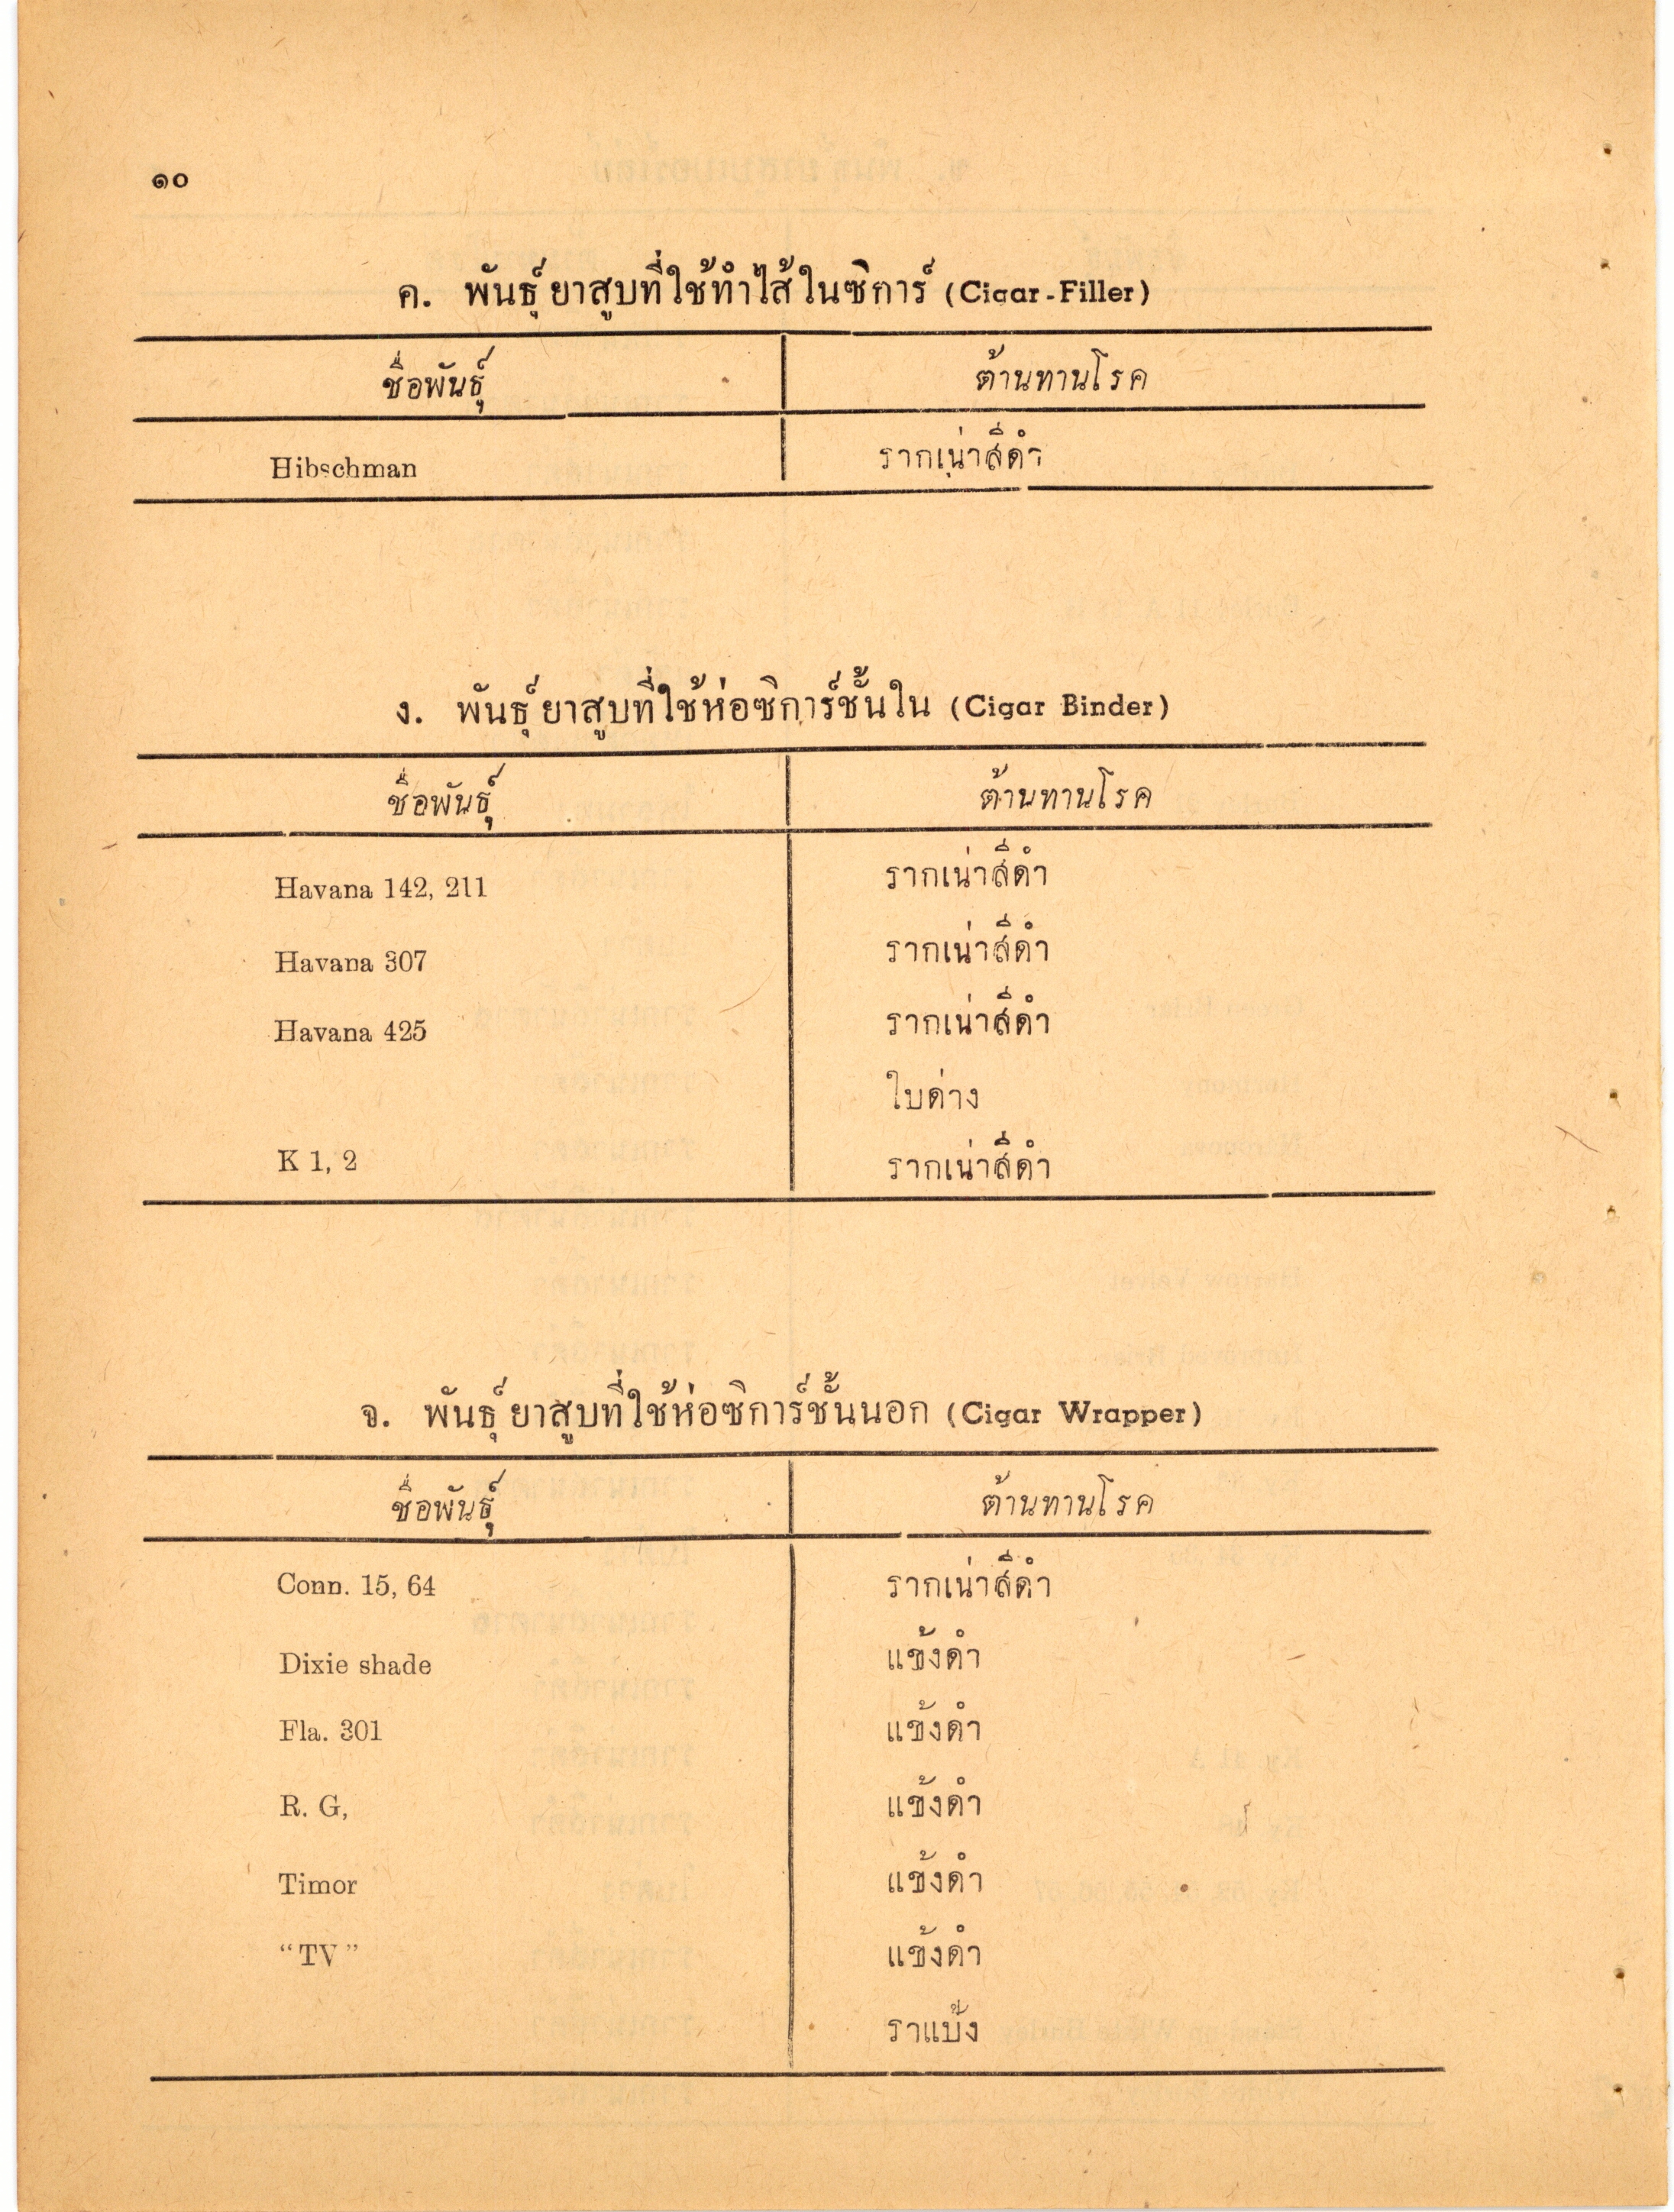 ๑๐
ค. พันธุ์ยาสูบที่ใช้ทำไส้ในซิการ์ (Cigar-Filler)
ชื่อพันธุ์ ต้านทานโรค
Hibschman รากเน่าสีดำ
ง. พันธุ์ยาสูบที่ใช้ห่อซิการ์ชั้นใน (Cigar Binder)
ชื่อพันธุ์ ต้านทานโรค
Havana 142, 211 รากเน่าสีดำ
Havana 307 รากเน่าสีดำ
Havana 425 รากเน่าสีดำ
ใบด่าง
K 1, 2 รากเน่าสีดำ
จ. พันธุ์ยาสูบที่ใช้ห่อซิการ์ชั้นนอก (Cigar Wrapper)
ชื่อพันธุ์ ต้านทานโรค
Conn. 15, 64 รากเน่าสีดำ
Dixie shade แข้งดำ
Fla. 301 แข้งดำ
R. G, แข้งดำ
Timor แข้งดำ
“TV” แข้งดำ
ราแป้ง